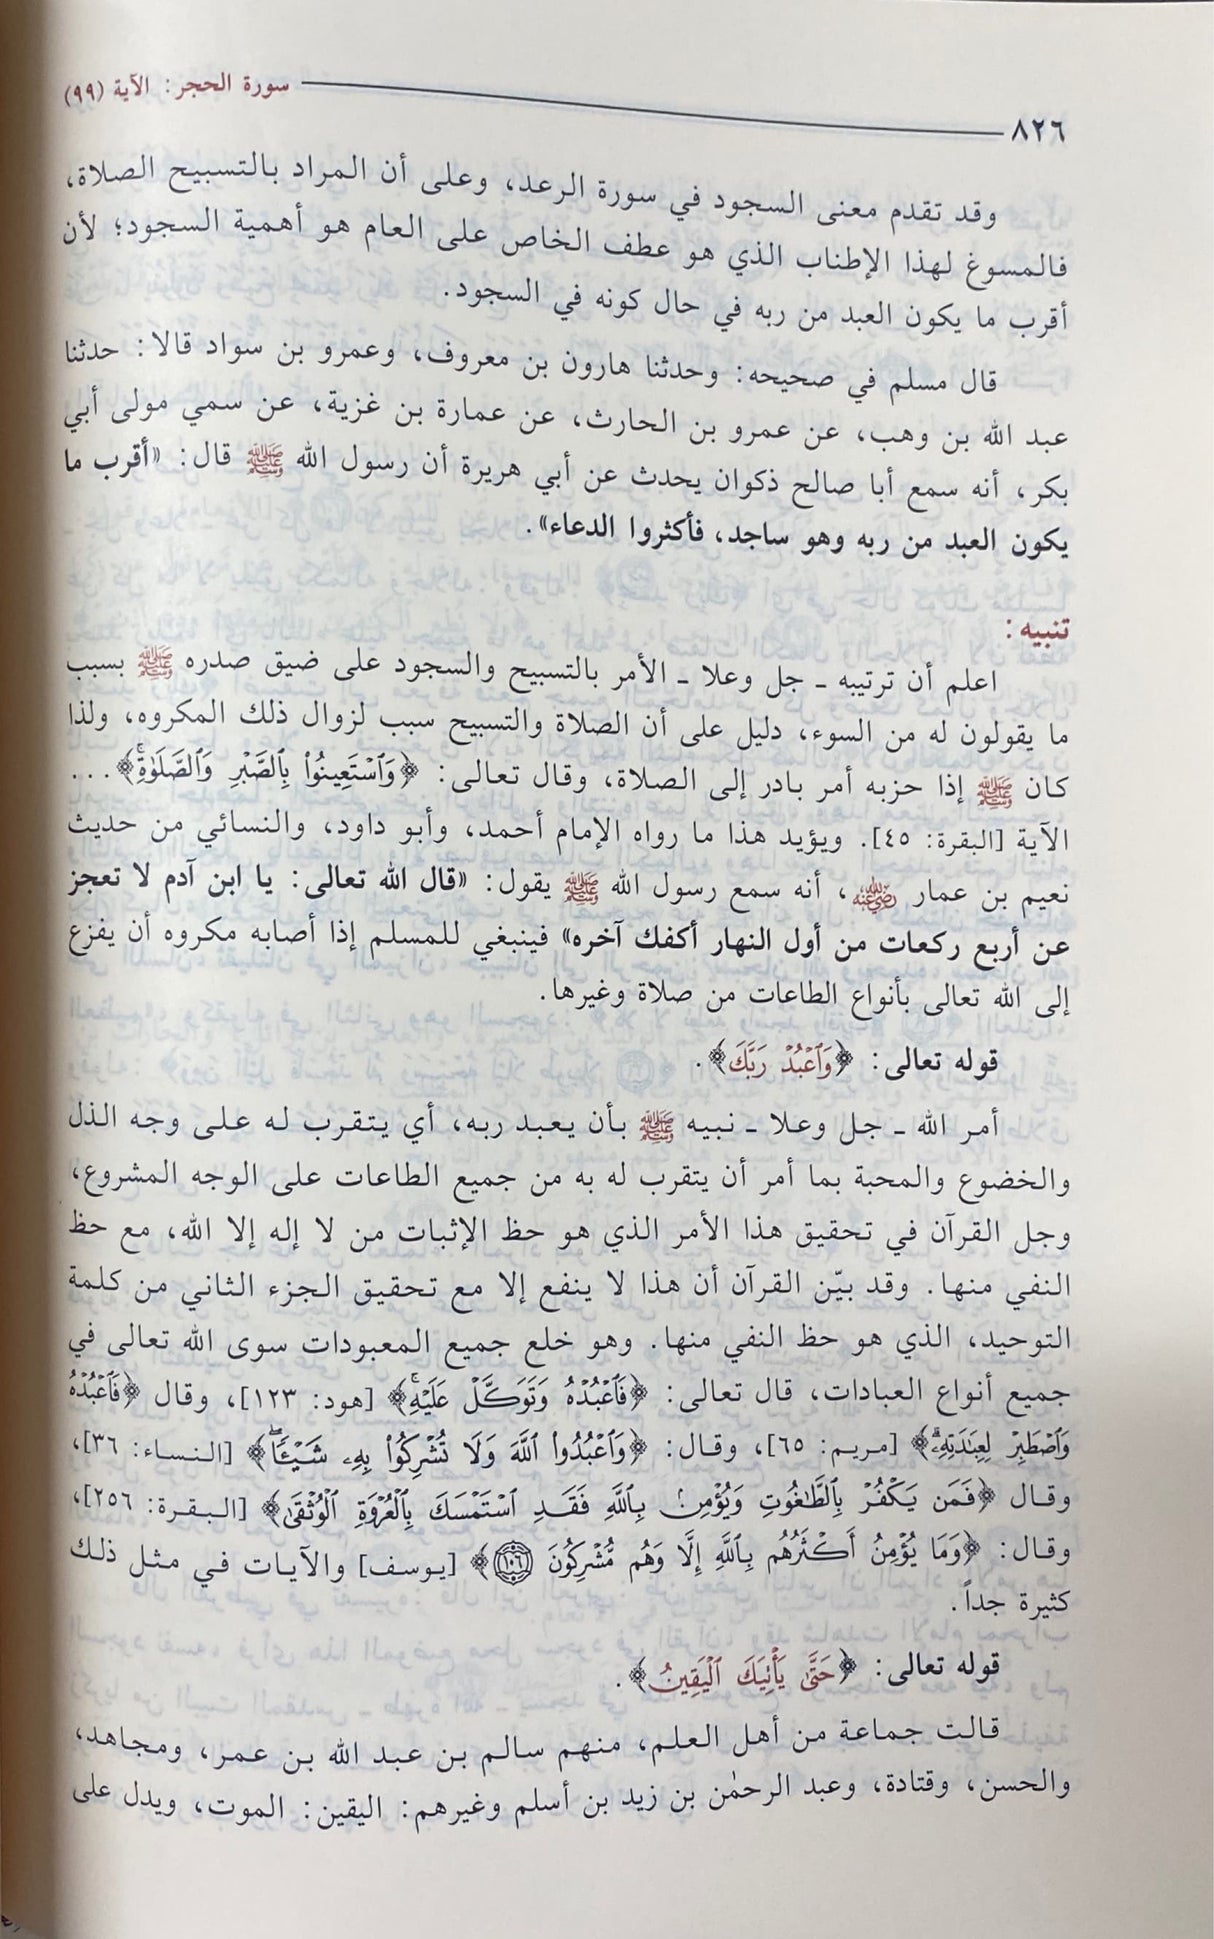 سورة الحجر: الآية (٩٩)
٨٢٦
وقد تقدم معنى السجود في سورة الرعد، وعلى أن المراد بالتسبيح الصلاة،
فالمسوغ لهذا الإطناب الذي هو عطف الخاص على العام هو أهمية السجود؛ لأن
أقرب ما يكون العبد من ربه في حال كونه في السجود.
قال مسلم في صحيحه: وحدثنا هارون بن معروف، وعمرو بن سواد قالا: حدثنا
عبد الله بن وهب، عن عمرو بن الحارث، عن عمارة بن غزية، عن سمي مولى أبي
بكر، أنه سمع أبا صالح ذكوان يحدث عن أبي هريرة أن رسول الله ﷺ قال: «أقرب ما
يكون العبد من ربه وهو ساجد، فأكثروا الدعاء».
تنبيه:
اعلم أن ترتيبه ـ جل وعلا ـ الأمر بالتسبيح والسجود على ضيق صدره ﷺ بسبب
ما يقولون له من السوء، دليل على أن الصلاة والتسبيح سبب لزوال ذلك المكروه، ولذا
كان ﷺ إذا حزبه أمر بادر إلى الصلاة، وقال تعالى: ﴿وَٱسْتَعِينُوا۟ بِٱلصَّبْرِ وَٱلصَّلَوٰةِۚ﴾...
الآية [البقرة: ٤٥]. ويؤيد هذا ما رواه الإمام أحمد، وأبو داود، والنسائي من حديث
نعيم بن عمار رضي الله عنه، أنه سمع رسول الله ﷺ يقول: «قال الله تعالى: يا ابن آدم لا تعجز
عن أربع ركعات من أول النهار أكفك آخره» فينبغي للمسلم إذا أصابه مكروه أن يفزع
إلى الله تعالى بأنواع الطاعات من صلاة وغيرها.
قوله تعالى: ﴿وَٱعْبُدْ رَبَّكَ﴾.
أمر الله ـ جل وعلا ـ نبيه ﷺ بأن يعبد ربه، أي يتقرب له على وجه الذل
والخضوع والمحبة بما أمر أن يتقرب له به من جميع الطاعات على الوجه المشروع،
وجل القرآن في تحقيق هذا الأمر الذي هو حظ الإثبات من لا إله إلا الله، مع حظ
النفي منها. وقد بيّن القرآن أن هذا لا ينفع إلا مع تحقيق الجزء الثاني من كلمة
التوحيد، الذي هو حظ النفي منها. وهو خلع جميع المعبودات سوى الله تعالى في
جميع أنواع العبادات، قال تعالى: ﴿فَٱعْبُدْهُ وَتَوَكَّلْ عَلَيْهِۚ﴾ [هود: ١٢٣]، وقال ﴿فَٱعْبُدْهُ
وَٱصْطَبِرْ لِعِبَـٰدَتِهِۦۚ﴾ [مريم: ٦٥]، وقال: ﴿وَٱعْبُدُوا۟ ٱللَّهَ وَلَا تُشْرِكُوا۟ بِهِۦ شَيْـًٔاۖ﴾ [النساء: ٣٦]،
وقال ﴿فَمَن يَكْفُرْ بِٱلطَّـٰغُوتِ وَيُؤْمِنۢ بِٱللَّهِ فَقَدِ ٱسْتَمْسَكَ بِٱلْعُرْوَةِ ٱلْوُثْقَىٰ﴾ [البقرة: ٢٥٦]،
وقال: ﴿وَمَا يُؤْمِنُ أَكْثَرُهُم بِٱللَّهِ إِلَّا وَهُم مُّشْرِكُونَ ١٠٦﴾ [يوسف] والآيات في مثل ذلك
كثيرة جداً.
قوله تعالى: ﴿حَتَّىٰ يَأْتِيَكَ ٱلْيَقِينُ﴾.
قالت جماعة من أهل العلم، منهم سالم بن عبد الله بن عمر، ومجاهد،
والحسن، وقتادة، وعبد الرحمٰن بن زيد بن أسلم وغيرهم: اليقين: الموت، ويدل على